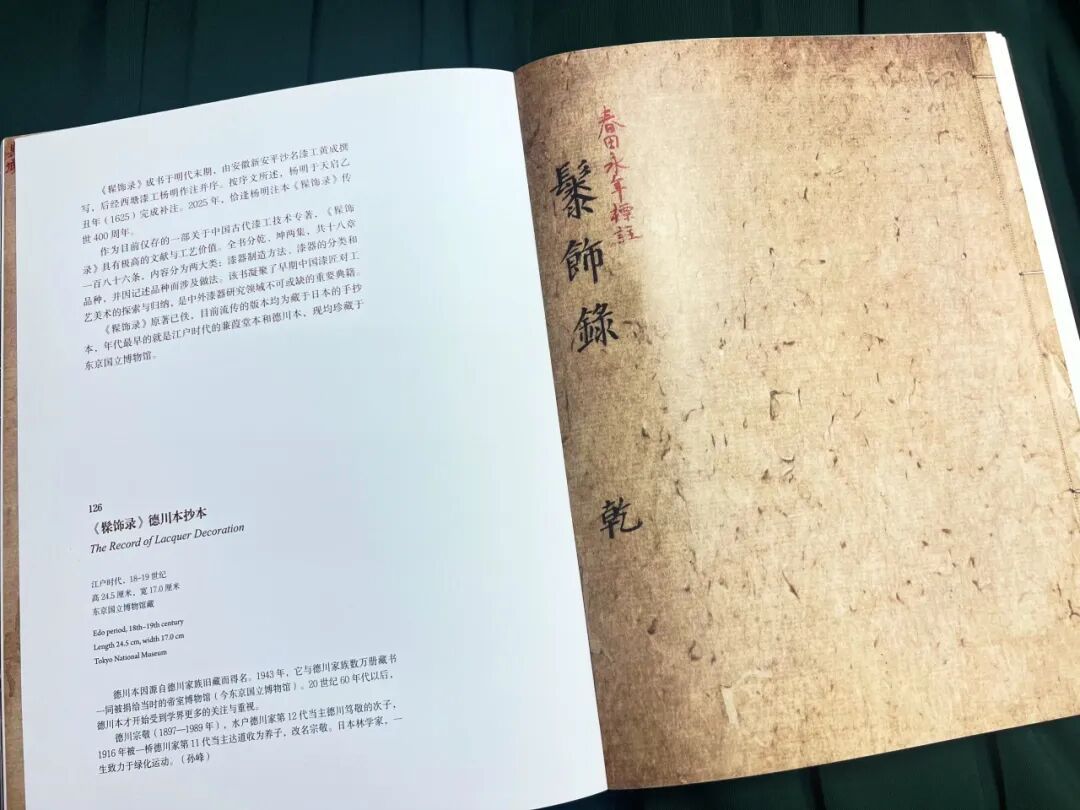 《髹饰录》成书于明代末期，由安徽新安平沙名漆工黄成撰
写，后经西塘漆工杨明作注并序。按序文所述，杨明于天启乙
丑年（1625）完成补注。2025年，恰逢杨明注本《髹饰录》传
世400周年。
作为目前仅存的一部关于中国古代漆工技术专著，《髹饰
录》具有极高的文献与工艺价值。全书分乾、坤两集，共十八章
一百八十六条，内容分为两大类：漆器制造方法、漆器的分类和
品种，并因记述品种而涉及做法。该书凝聚了早期中国漆匠对工
艺美术的探索与归纳，是中外漆器研究领域不可或缺的重要典籍。
《髹饰录》原著已佚，目前流传的版本均为藏于日本的手抄
本，年代最早的就是江户时代的蒹葭堂本和德川本，现均珍藏于
东京国立博物馆。
126
《髹饰录》德川本抄本
The Record of Lacquer Decoration
江户时代，18-19世纪
高24.5厘米，宽17.0厘米
东京国立博物馆藏
Edo period, 18th-19th century
Length 24.5 cm, width 17.0 cm
Tokyo National Museum
德川本因源自德川家族旧藏而得名。1943年，它与德川家族数万册藏书
一同被捐给当时的帝室博物馆（今东京国立博物馆）。20世纪60年代以后，
德川本才开始受到学界更多的关注与重视。
德川宗敬（1897—1989年），水户德川家第12代当主德川笃敬的次子，
1916年被一桥德川家第11代当主达道收为养子，改名宗敬。日本林学家，一
生致力于绿化运动。（孙峰）
春田永年標註
髹飾錄
乾